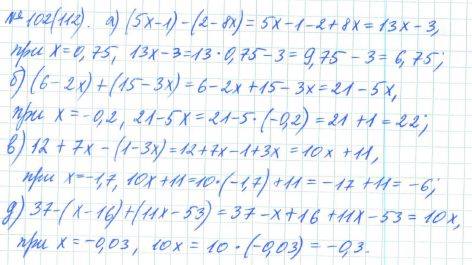 №102(112). а) (5x-1)-(2-8x)=5x-1-2+8x=13x-3,
при x=0,75, 13x-3=13·0,75-3=9,75-3=6,75;
б) (6-2x)+(15-3x)=6-2x+15-3x=21-5x,
при x=-0,2, 21-5x=21-5·(-0,2)=21+1=22;
в) 12+7x-(1-3x)=12+7x-1+3x=10x+11,
при x=-1,7, 10x+11=10·(-1,7)+11=-17+11=-6;
д) 37-(x-16)+(11x-53)=37-x+16+11x-53=10x,
при x=-0,03, 10x=10·(-0,03)=-0,3.